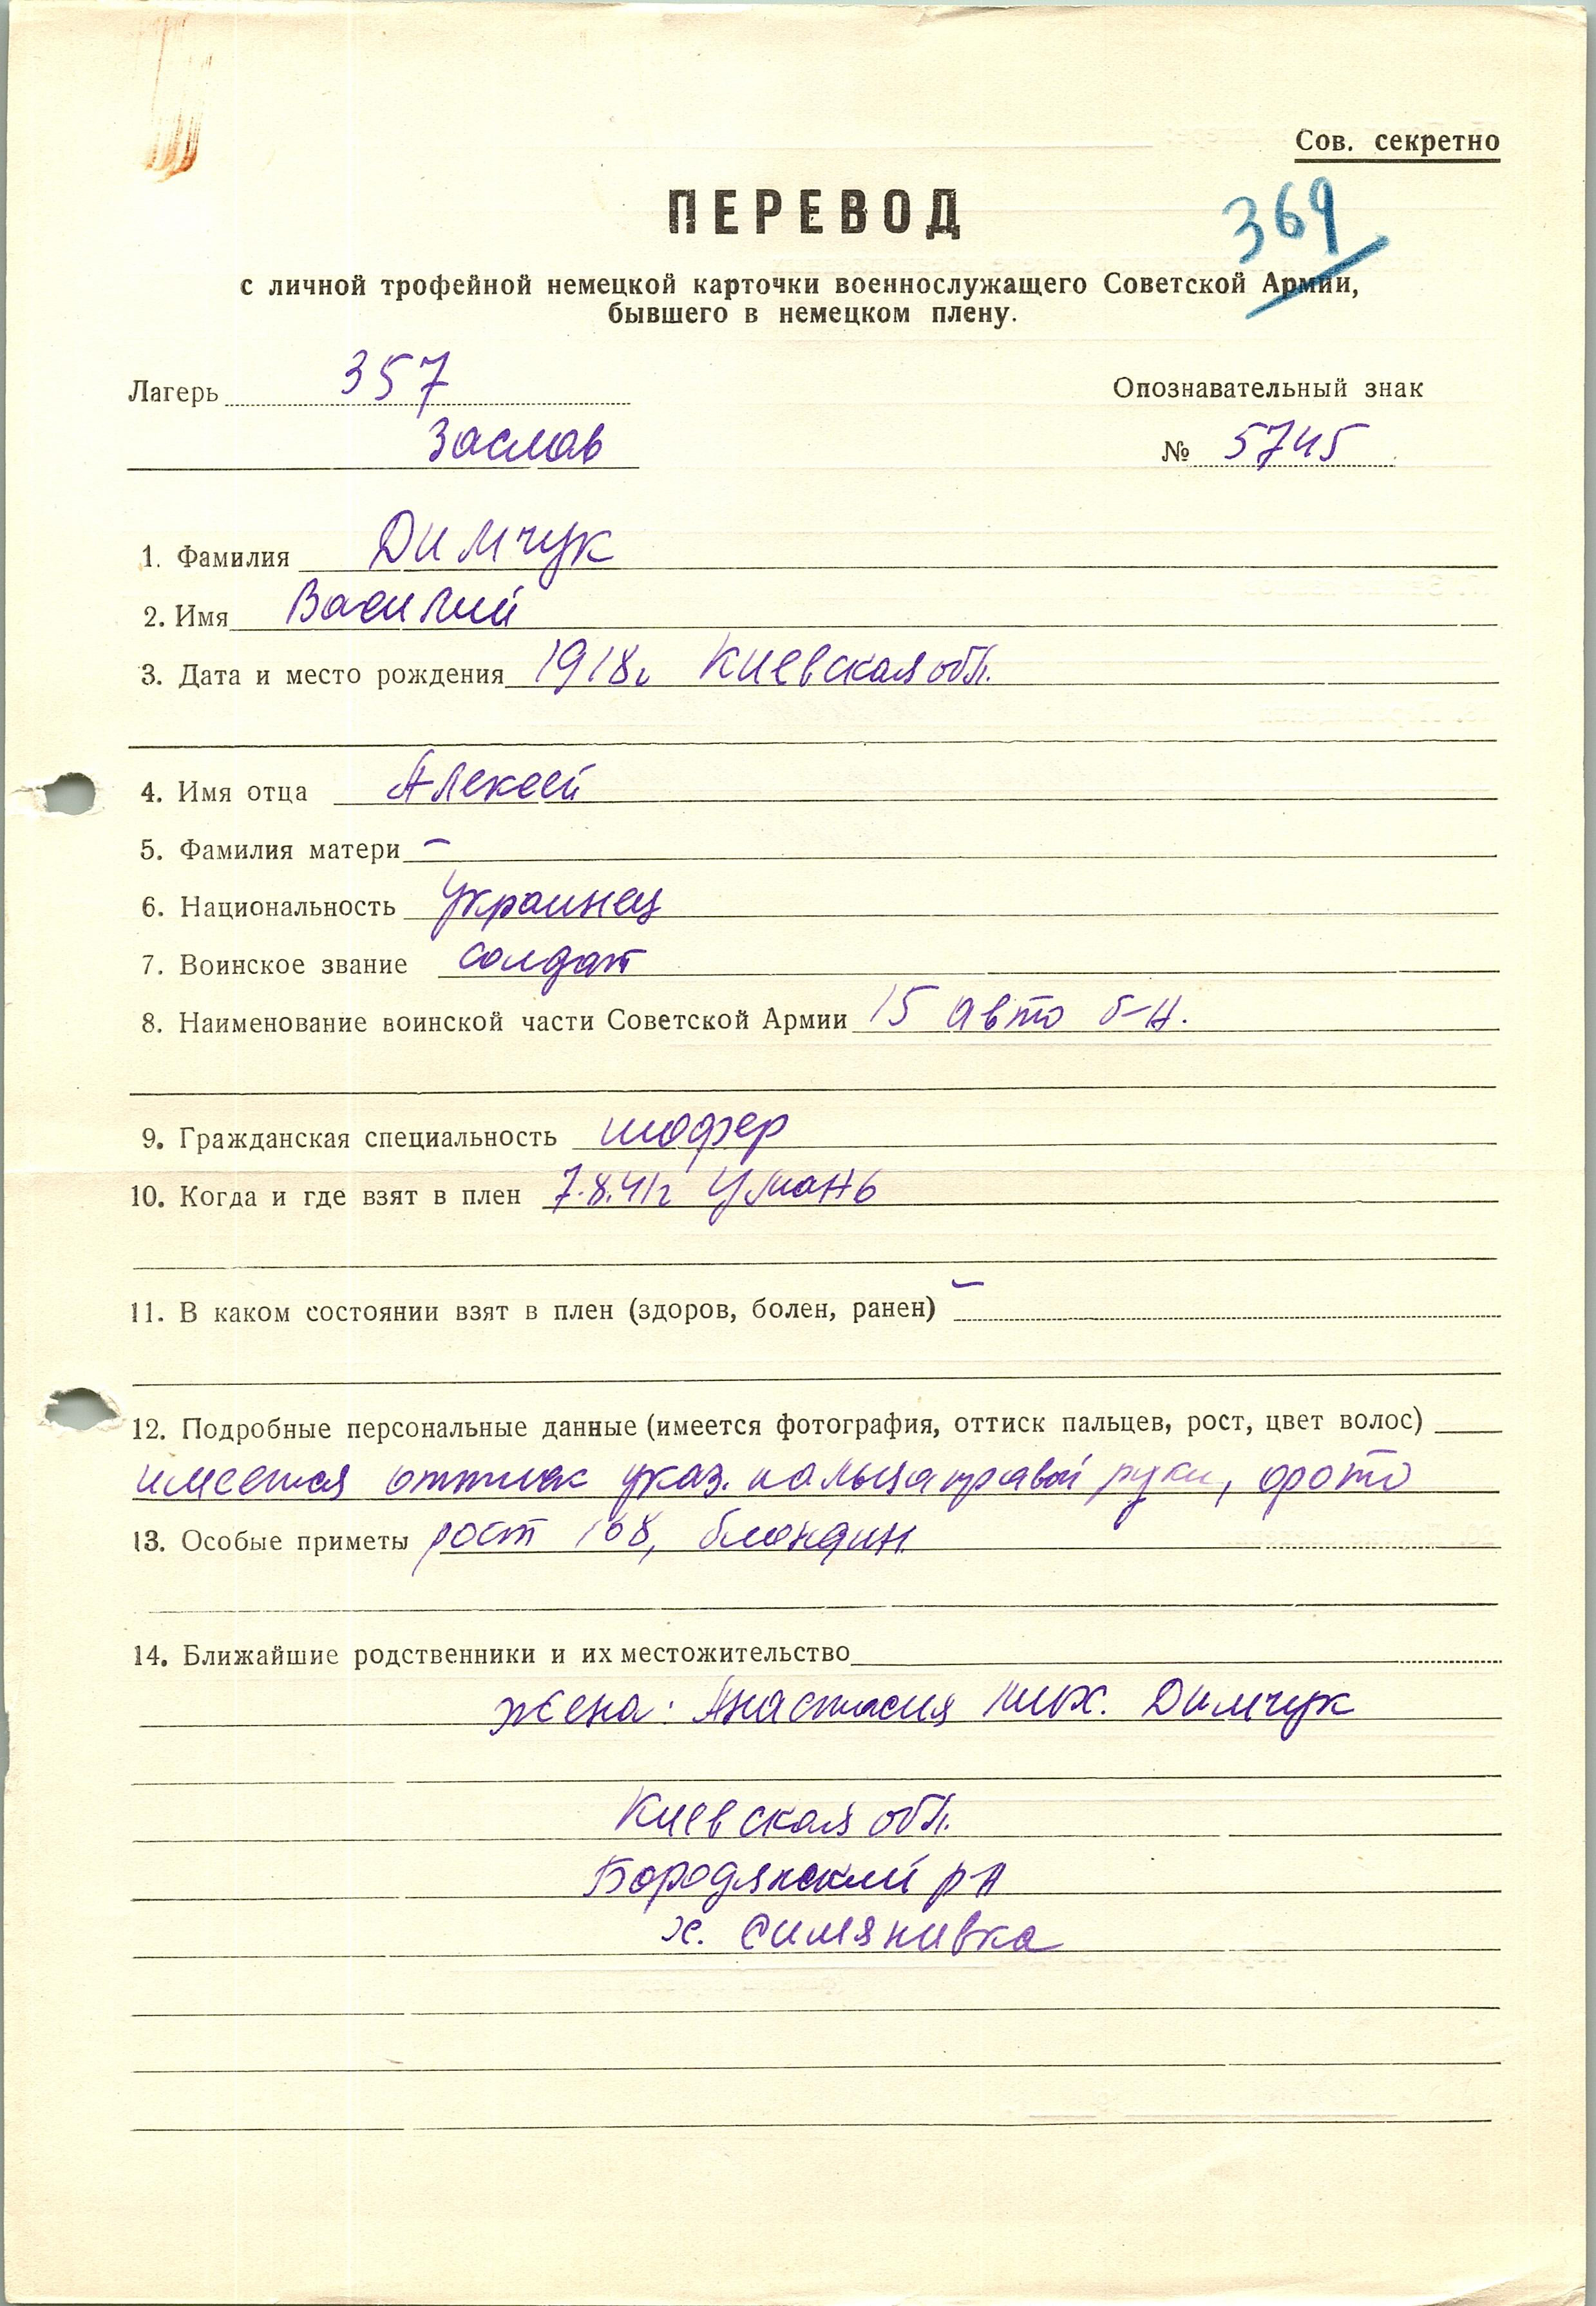 Сов. секретно
ПЕРЕВОД
369
с личной трофейной немецкой карточки военнослужащего Советской Армии,
бывшего в немецком плену.
Лагерь 357
Опознавательный знак
Заслав
№ 5745
1. Фамилия Димчук
2. Имя Василий
3. Дата и место рождения 1918г Киевская обл.
4. Имя отца Алексей
5. Фамилия матери –
6. Национальность украинец
7. Воинское звание солдат
8. Наименование воинской части Советской Армии 15 авто б-н.
9. Гражданская специальность шофер
10. Когда и где взят в плен 7.8.41г Умань
11. В каком состоянии взят в плен (здоров, болен, ранен) –
12. Подробные персональные данные (имеется фотография, оттиск пальцев, рост, цвет волос)
имеется оттиск указ. пальца правой руки, фото
13. Особые приметы рост 168, блондин
14. Ближайшие родственники и их местожительство
жена: Анастасия Мих. Димчук
Киевская обл.
Бородянский р-н
х. Симянивка